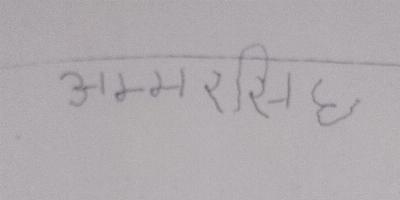 अम्मरसिह